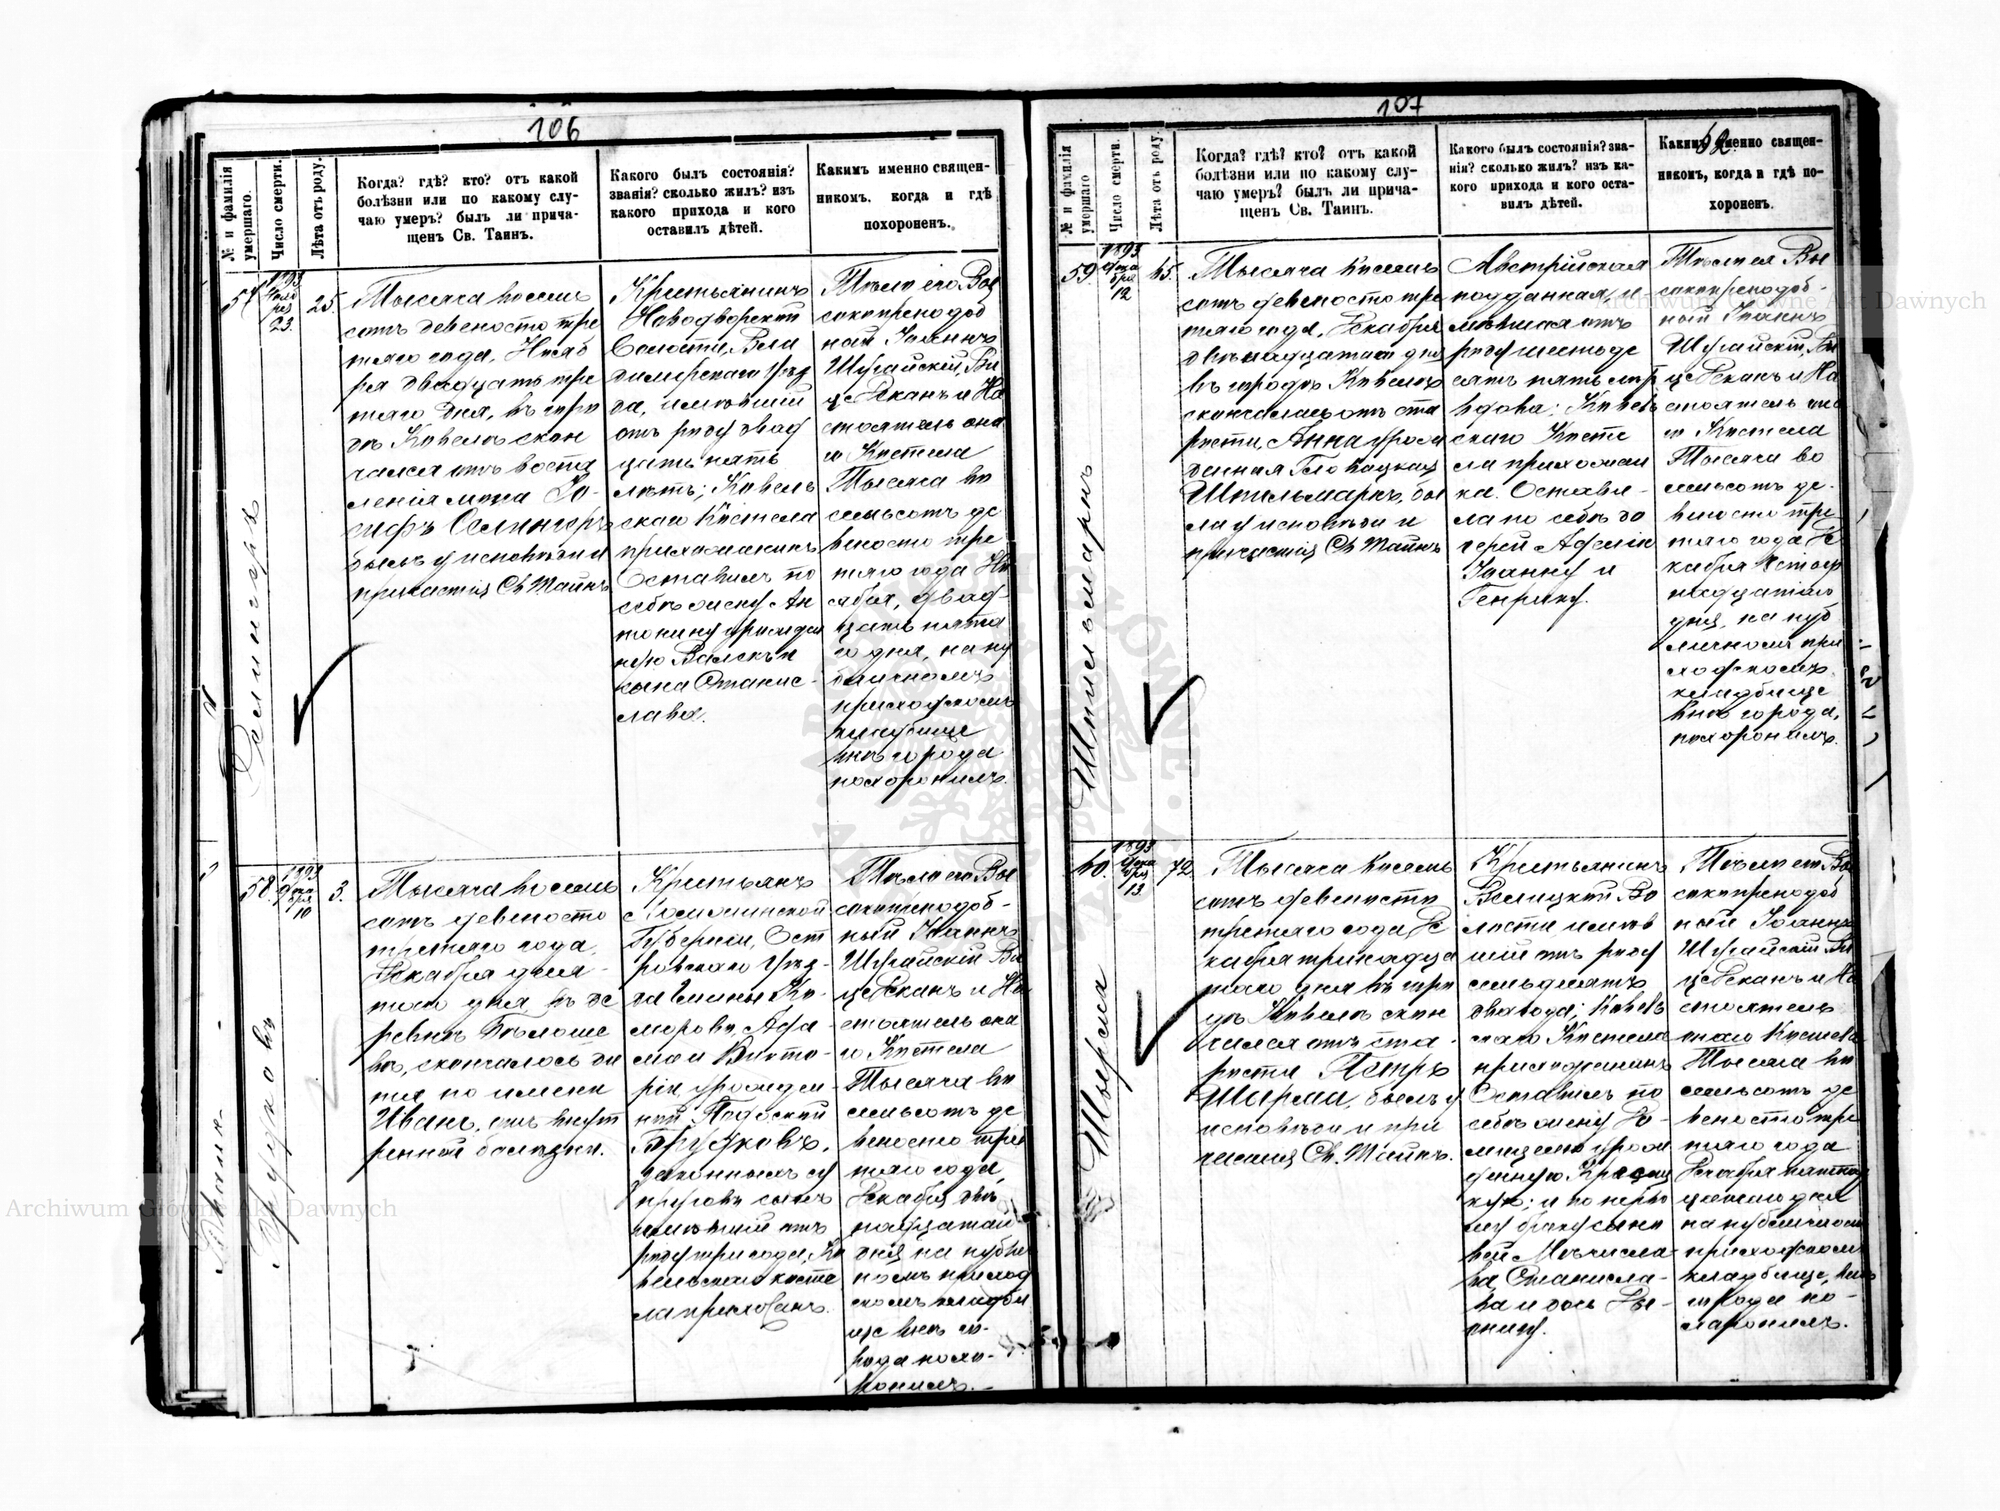 106
№ и фамилія умершаго.
Число смерти.
Лѣта отъ роду.
Когда? гдѣ? кто? отъ какой
болѣзни или по какому слу-
чаю умеръ? былъ ли прича-
щенъ Св. Таинъ.
Какого былъ состоянія?
званія? сколько жилъ? изъ
какого прихода и кого
оставилъ дѣтей.
Какимъ именно священ-
никомъ. когда и гдѣ
похороненъ.
57
1893
Ноя
бря
23.
25.
Тысяча восемь
сотъ девяносто тре
тьяго года, Нояб
ря двадцать тре
тьяго дня, въ горо
дѣ Ковелѣ скон
чался отъ воспа
ленія мозга Іо-
сифъ
былъ у исповѣди и
причастія Св Тайнъ
Крестьянинъ
Новодворской
Волости, Вла
димирскаго уѣз
да, имѣвшій
отъ роду двад
цать пять
лѣтъ; Ковель
скаго Костела
прихожанинъ
Оставилъ по
себѣ жену Ан
тонину урожден
ную
сына Станис-
лава.
Тѣло его Вы
сокопреподоб
ный Іоаннъ
Шуйскій, Ви
це Деканъ и На
стоятель она
го Костела
Тысяча во
семьсотъ де
вяносто тре
тьяго года Но
ября, двад-
цать пята
го дня, на пу
бличномъ
приходскомъ
кладбище
внѣ города
похоронилъ.
58.
1893
Дека
бря
10
3.
Иванъ
Трудковъ
Тысяча восемь
сотъ девяносто
третьяго года,
Декабря деся-
таго дня въ де
ревнѣ Бѣлоше
вѣ, скончалось ди
тя по имени
Иванъ, отъ внут
ренной болѣзни.
Крестьянъ
Ломжинской
Губерніи, Ост
ровскаго Уѣзд-
да Гмины Ко-
морово, Ада-
ма и Викто-
ріи, урожден
ной
Трудковъ,
законныхъ су
пруговъ сынъ
имѣвшій отъ
роду три года, Ко
вельскаго косте
ла прихожанъ.
Тѣло его Вы
сокопреподоб-
ный Іоаннъ
Шуйскій Ви
це Деканъ и На
стоятель она
го Костела
Тысяча во
семьсотъ де
вяносто трет
тьяго года,
Декабря, две
надцатаго
дня на публи
номъ приход
скомъ кладби
ще внѣ го-
рода похо-
ронилъ.
107
52
№ и фамилія умершаго.
Число смерти.
Лѣта отъ роду.
Когда? гдѣ? кто? отъ какой
болѣзни или по какому слу-
чаю умеръ? былъ ли прича-
щенъ Св. Таинъ.
Какого былъ состоянія? зва-
нія? сколько жилъ? изъ ка-
кого прихода и кого оста-
вилъ дѣтей.
Какимъ именно священ-
никомъ, когда и гдѣ по-
хороненъ.
59.
1893
Дека
бря
12
65.
Шпильмаръ
Тысяча восемь
сотъ девяносто тре
тьяго года, Декабря
двѣнадцатаго дня
въ городѣ Ковелѣ
скончалась отъ ста
рости, Анна урож
денная Гловацкая
Шпильмаръ, бы
ла у исповѣди и
причастія Св Тайнъ
Австрійская
подданная, и
мѣвшая отъ
роду шестьде
сятъ пять лѣт
вдова; Ковель
скаго Косте
ла прихожан
ка. Остави-
ла по себѣ до
черей
Іоанну и
Генрику.
Тѣло ея Вы
сокопреподоб-
ный Іоаннъ
Шуйскій, Ви
це Деканъ и На
стоятель она
го Костела
Тысяча во
семьсотъ де-
вяносто тре-
тьяго года Де
кабря
надцатаго
дня, на пуб
личномъ при
ходскомъ
кладбище
внѣ города,
похоронилъ.
60.
1893
Дека
бря
13
72
Тысяча восемь
сотъ девяносто
третьяго года, Де
кабря тринадца
таго дня въ горо
дѣ Ковелѣ скон
чался отъ ста-
рости Петръ
былъ у
исповѣди и при
частія Св. Тайнъ.
Крестьянинъ
Велицкой Во
лости имѣв
шій отъ роду
семьдесятъ
два года; Ковель
скаго Костела
прихожанинъ
Оставилъ по
себѣ жену
урож
денную
кую; и по перво
му браку сыно
вей Мѣчисла
ва, Станисла-
ва и дочь
Тѣло его Вы
сокопреподоб
ный Іоаннъ
Шуйскій Ви
це Деканъ и На
стоятель
онаго Костела
Тысяча во
семьсотъ де
вяносто тре
тьяго года
Декабря пятнад
цатаго дня
на публичном
приходском
кладбище, внѣ
города по-
хоронилъ.
Archiwum Główne Akt Dawnych
Archiwum Główne Akt Dawnych